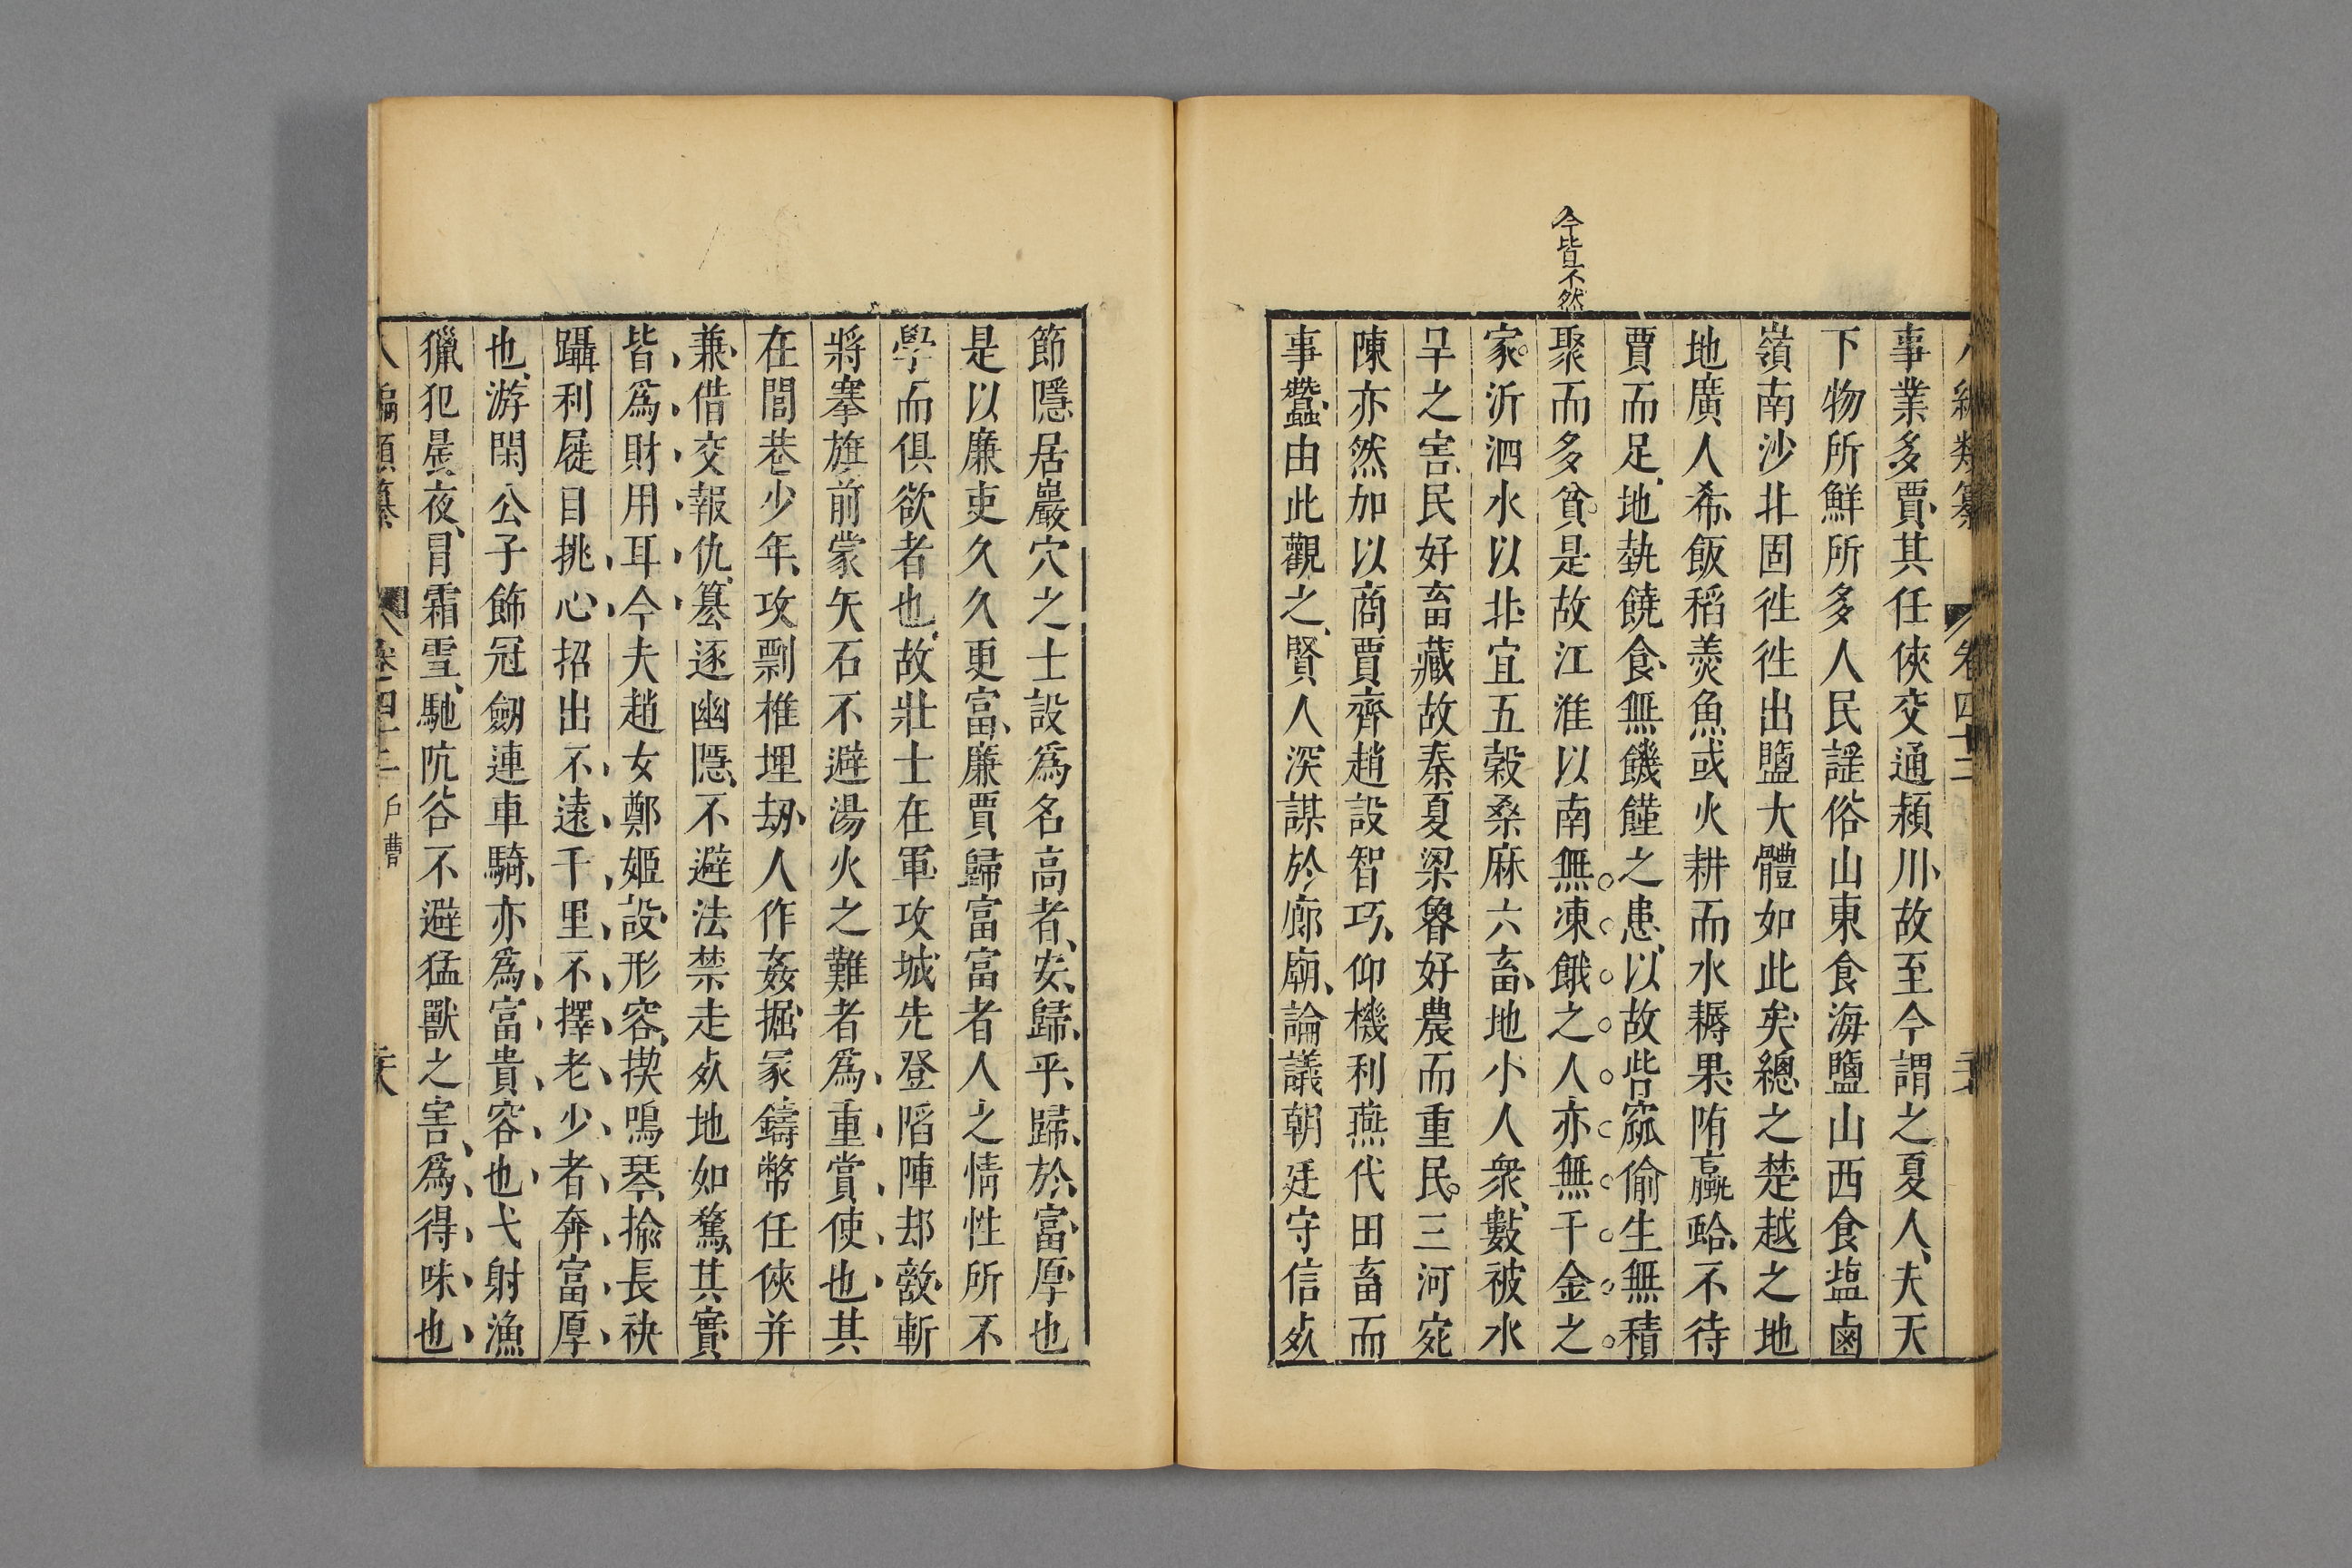 今皆不然
事業多賈其任俠交通潁川故至今謂之夏人夫天
下物所鮮所多人民謡俗山東食海鹽山西食塩鹵
嶺南沙北固徃徃出鹽大體如此矣總之楚越之地
地廣人希飯稻羹魚或火耕而水耨果陏蠃蛤不待
賈而足地埶饒食無饑饉之患以故呰窳偷生無積
聚而多貧是故江淮以南無凍餓之人亦無千金之
家沂泗水以北宜五穀桑麻六畜地小人衆數被水
旱之害民好畜藏故秦夏梁魯好農而重民三河宛
陳亦然加以商賈齊趙設智巧仰機利燕代田畜而
事蠶由此觀之賢人深謀於廊廟論議朝廷守信死
節隱居巖穴之士設爲名高者安歸乎歸於富厚也
是以廉吏久久更富廉賈歸富富者人之情性所不
學而俱欲者也故壯士在軍攻城先登陷陣却敵斬
將搴旗前蒙矢石不避湯火之難者爲重賞使也其
在閭巷少年攻剽椎埋劫人作姦掘冢鑄幣任俠并
兼借交報仇篡逐幽隱不避法禁走死地如騖其實
皆爲財用耳今夫趙女鄭姬設形容揳鳴琴揄長袂
躡利屣目挑心招出不遠千里不擇老少者奔富厚
也游閑公子飾冠劒連車騎亦爲富貴容也弋射漁
獵犯晨夜冒霜雪馳阬谷不避猛獸之害爲得味也
八編類纂 卷四十二 户曹